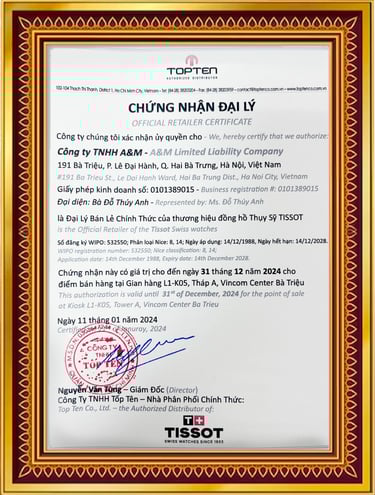 TOPTEN
AUTHORIZED DISTRIBUTOR
CHỨNG NHẬN ĐẠI LÝ
OFFICIAL RETAILER CERTIFICATE
Công ty chúng tôi xác nhận ủy quyền cho - We, hereby certify that we authorize:
Công ty TNHH A&M - A&M Limited Liability Company
191 Bà Triệu, P. Lê Đại Hành, Q. Hai Bà Trưng, Hà Nội, Việt Nam
#191 Ba Trieu St., Le Dai Hanh Ward, Hai Ba Trung Dist., Ha Noi City, Vietnam
Giấy phép kinh doanh số: 0101389015 - Business registration #: 0101389015
Đại diện: Bà Đỗ Thúy Anh - Represented by: Ms. Đỗ Thúy Anh
là Đại Lý Bán Lẻ Chính Thức của thương hiệu đồng hồ Thụy Sỹ TISSOT
is the Official Retailer of the Tissot Swiss watches
Số đăng ký WIPO: 532550; Phân loại Nice: 8, 14; Ngày áp dụng: 14/12/1988, Ngày hết hạn: 14/12/2028.
WIPO registration number: 532550; Nice classification: 8, 14;
Application date: 14th December 1988, Expiry date: 14th December 2028.
Chứng nhận này có giá trị cho đến ngày 31 tháng 12 năm 2024 cho
điểm bán hàng tại Gian hàng L1-K05, Tháp A, Vincom Center Bà Triệu
This authorization is valid until 31st of December, 2024 for the point of sale
at Kiosk L1-K05, Tower A, Vincom Center Ba Trieu
Ngày 11 tháng 01 năm 2024
CÔNG TY
TNHH
TOP TEN
Nguyễn Văn Tùng – Giám Đốc (Director)
Công Ty TNHH Tốp Ten – Nhà Phân Phối Chính Thức:
Top Ten Co., Ltd. – the Authorized Distributor of:
T+
TISSOT
SWISS WATCHES SINCE 1853